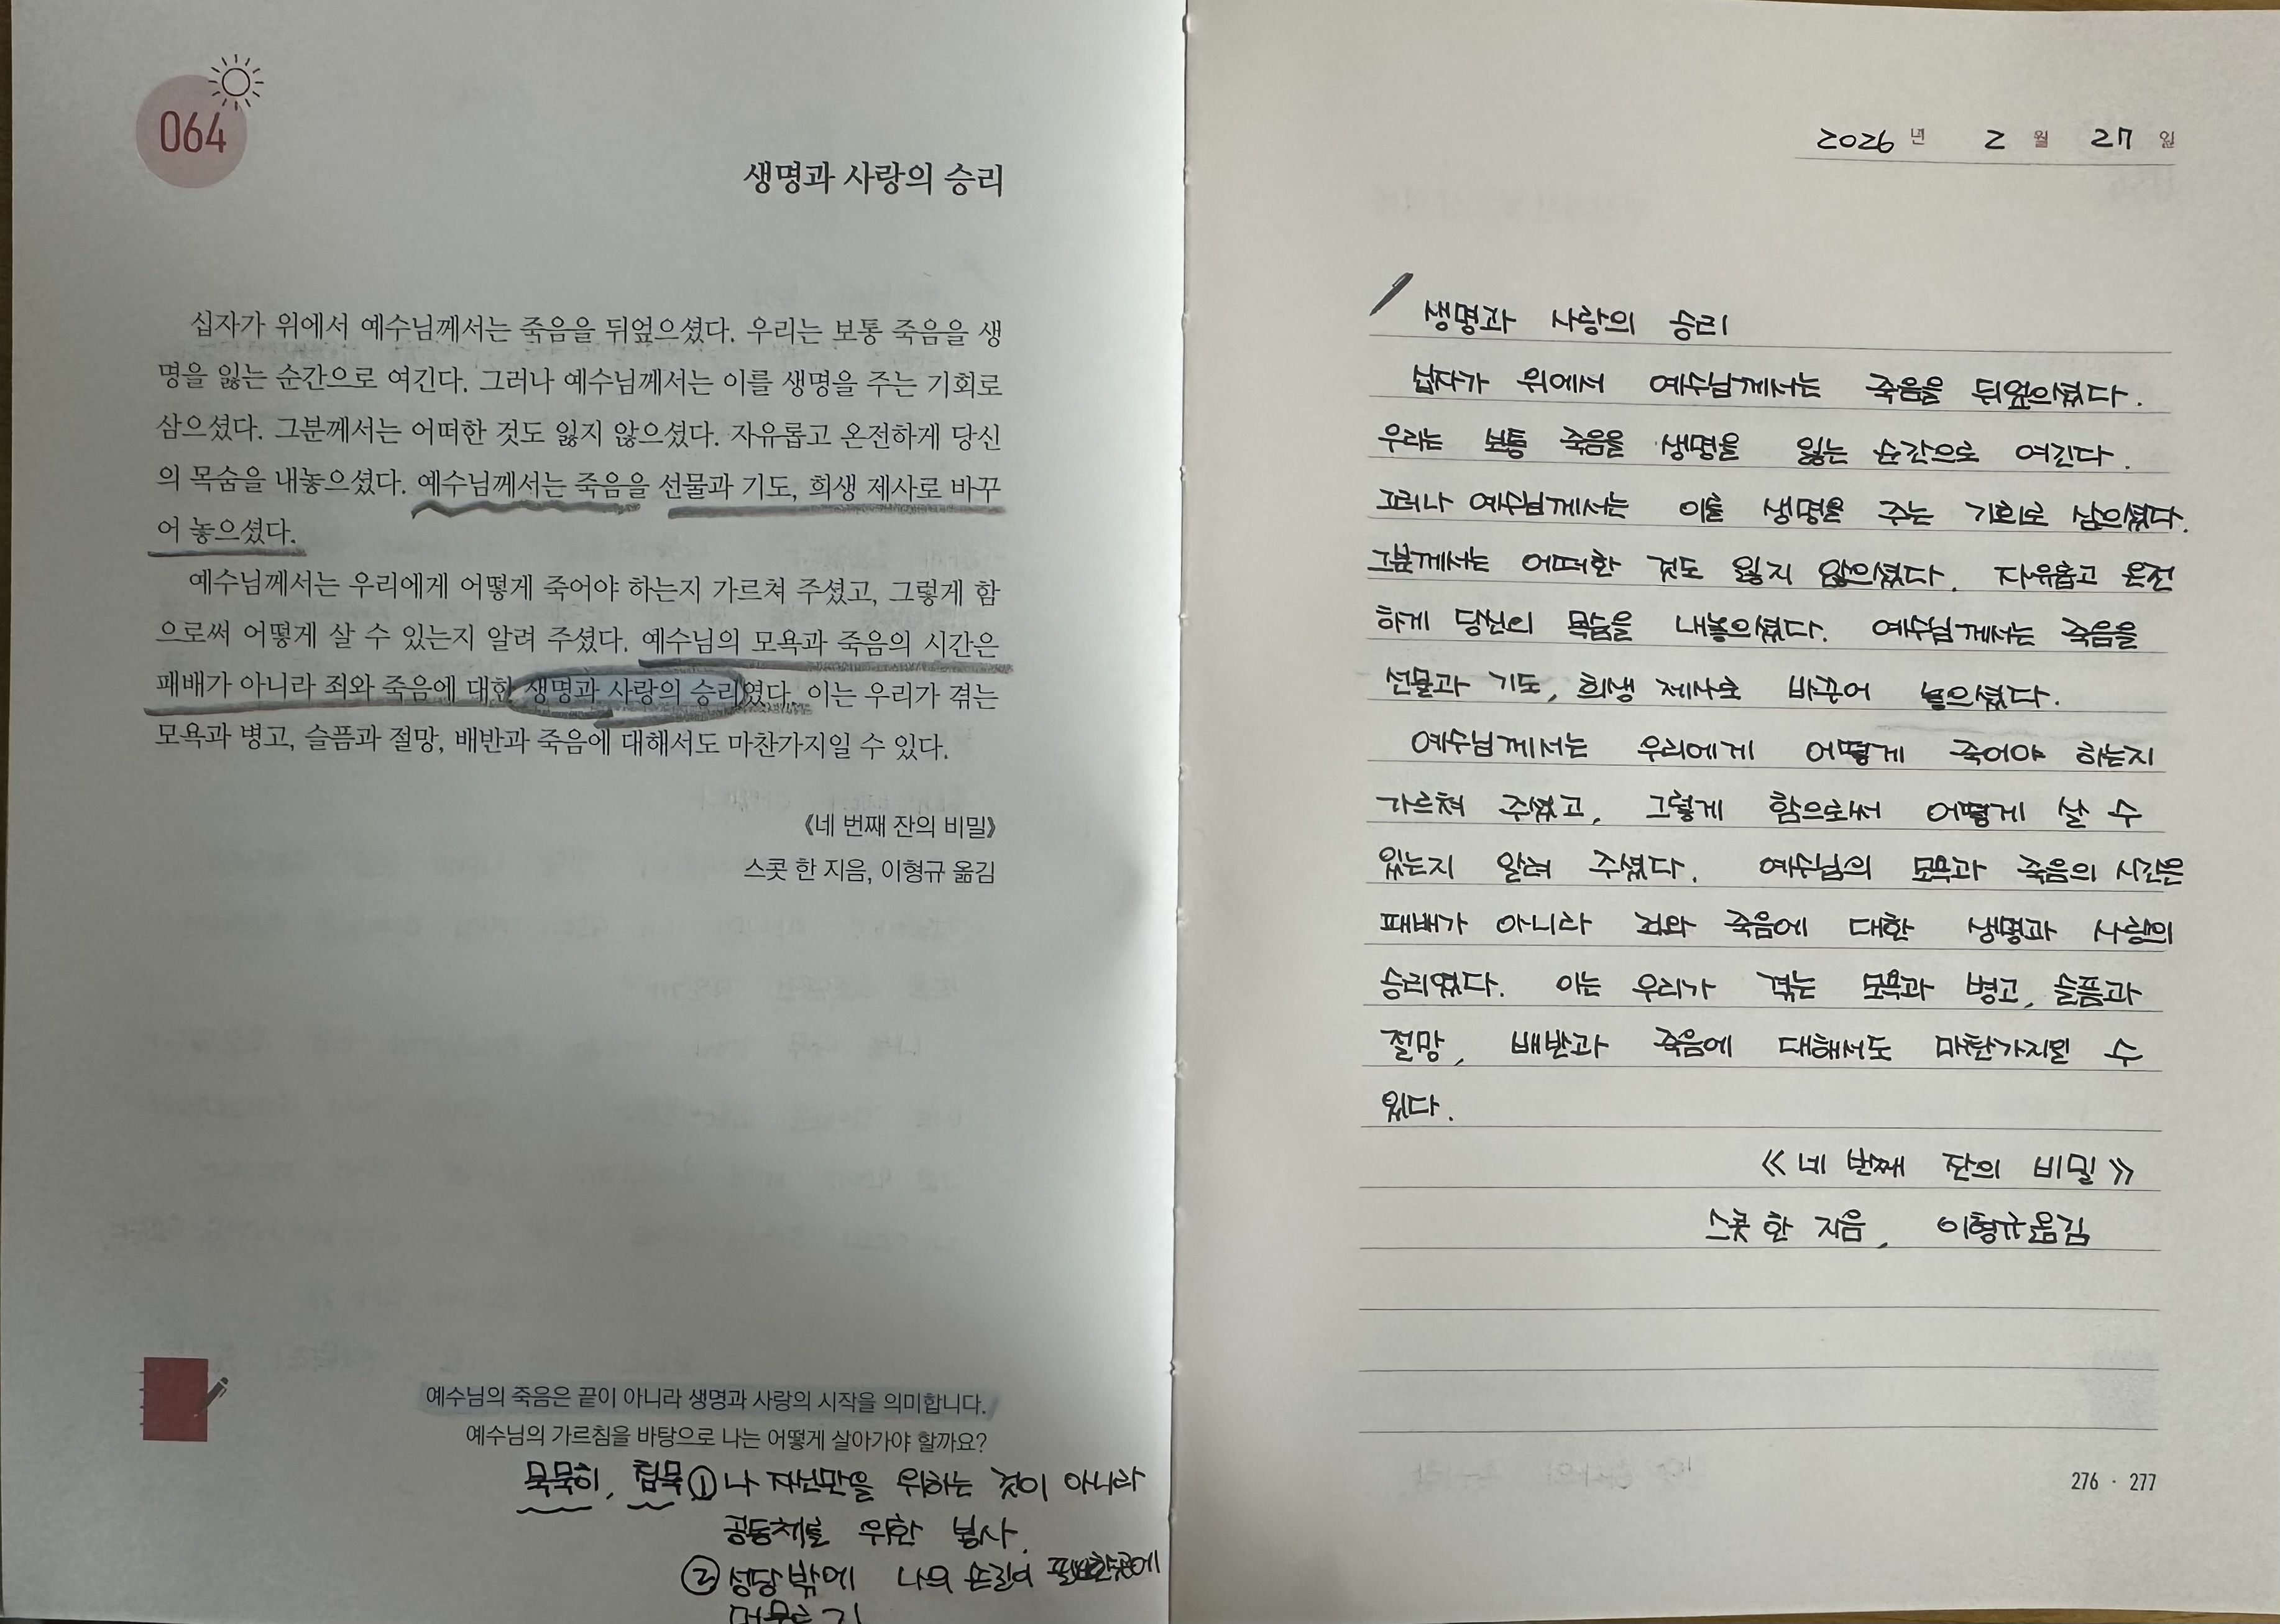 064
생명과 사랑의 승리
십자가 위에서 예수님께서는 죽음을 뒤엎으셨다. 우리는 보통 죽음을 생
명을 잃는 순간으로 여긴다. 그러나 예수님께서는 이를 생명을 주는 기회로
삼으셨다. 그분께서는 어떠한 것도 잃지 않으셨다. 자유롭고 온전하게 당신
의 목숨을 내놓으셨다. 예수님께서는 죽음을 선물과 기도, 희생 제사로 바꾸
어 놓으셨다.
예수님께서는 우리에게 어떻게 죽어야 하는지 가르쳐 주셨고, 그렇게 함
으로써 어떻게 살 수 있는지 알려 주셨다. 예수님의 모욕과 죽음의 시간은
패배가 아니라 죄와 죽음에 대한 생명과 사랑의 승리였다. 이는 우리가 겪는
모욕과 병고, 슬픔과 절망, 배반과 죽음에 대해서도 마찬가지일 수 있다.
《네 번째 잔의 비밀》
스콧 한 지음, 이형규 옮김
예수님의 죽음은 끝이 아니라 생명과 사랑의 시작을 의미합니다.
예수님의 가르침을 바탕으로 나는 어떻게 살아가야 할까요?
묵묵히, 침묵 ① 나 자신만을 위하는 것이 아니라
공동체를 위한 봉사.
② 성당 밖에 나의 손길이 필요한곳에
머무르기
2026 년 2 월 27 일
생명과 사랑의 승리
십자가 위에서 예수님께서는 죽음을 뒤엎으셨다.
우리는 보통 죽음을 생명을 잃는 순간으로 여긴다.
그러나 예수님께서는 이를 생명을 주는 기회로 삼으셨다.
그분께서는 어떠한 것도 잃지 않으셨다. 자유롭고 온전
하게 당신의 목숨을 내놓으셨다. 예수님께서는 죽음을
선물과 기도, 희생 제사로 바꾸어 놓으셨다.
예수님께서는 우리에게 어떻게 죽어야 하는지
가르쳐 주셨고, 그렇게 함으로써 어떻게 살 수
있는지 알려 주셨다. 예수님의 모욕과 죽음의 시간은
패배가 아니라 죄와 죽음에 대한 생명과 사랑의
승리였다. 이는 우리가 겪는 모욕과 병고, 슬픔과
절망, 배반과 죽음에 대해서도 마찬가지일 수
있다.
《네 번째 잔의 비밀》
스콧 한 지음, 이형규 옮김
276 · 277